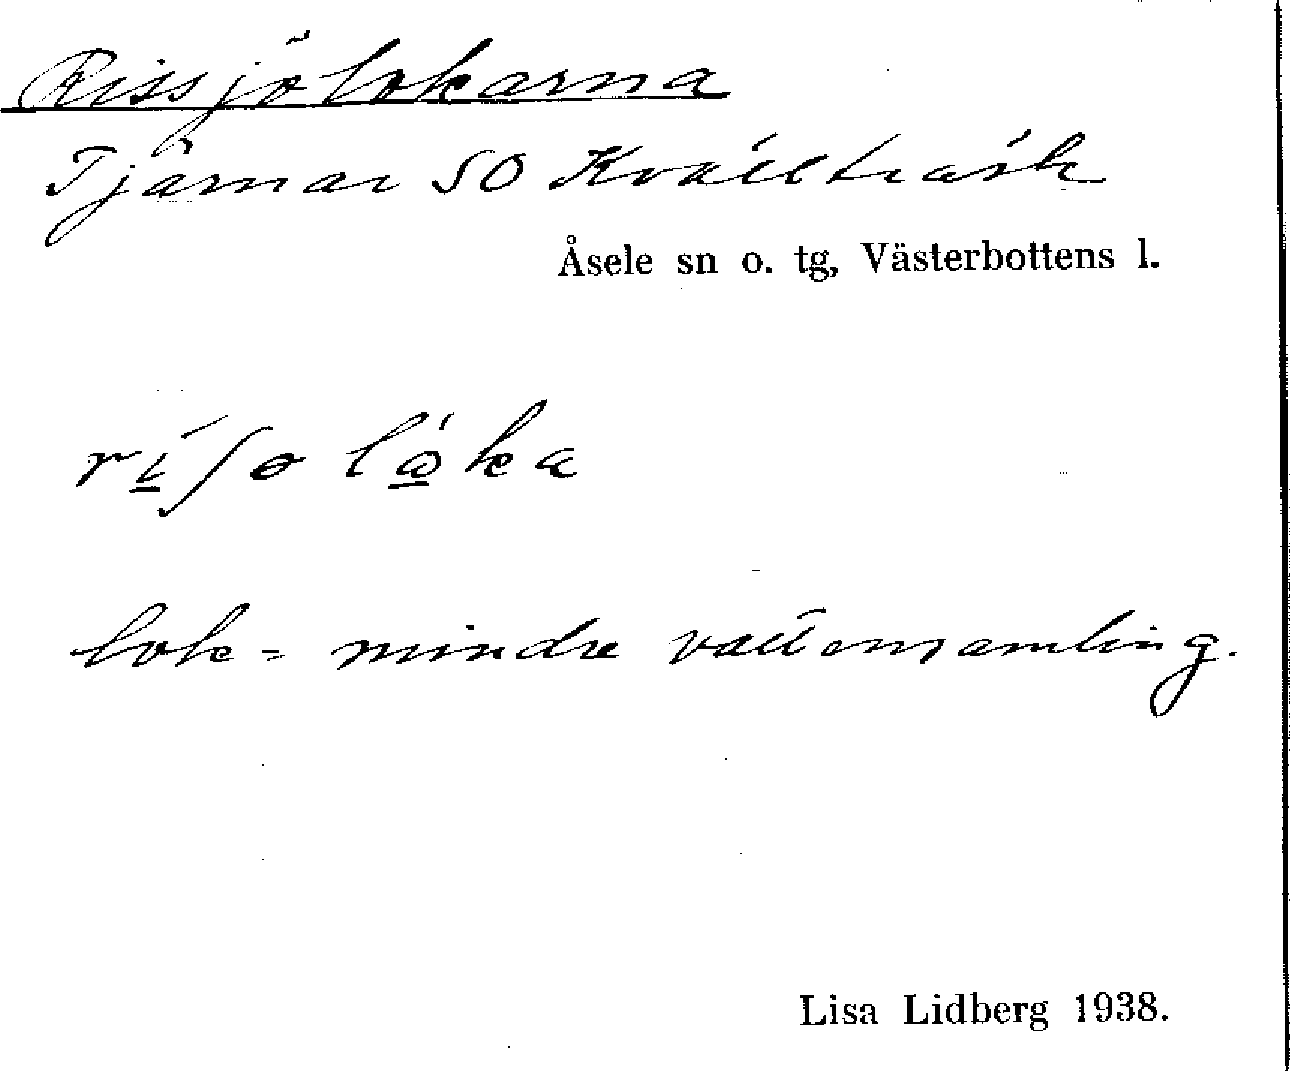 Rissjölokarna
Tjärnar SO Kvällträsk
Åsele sn o. tg, Västerbottens l.
lok = mindre vattensamling.
Lisa Lidberg 1938.